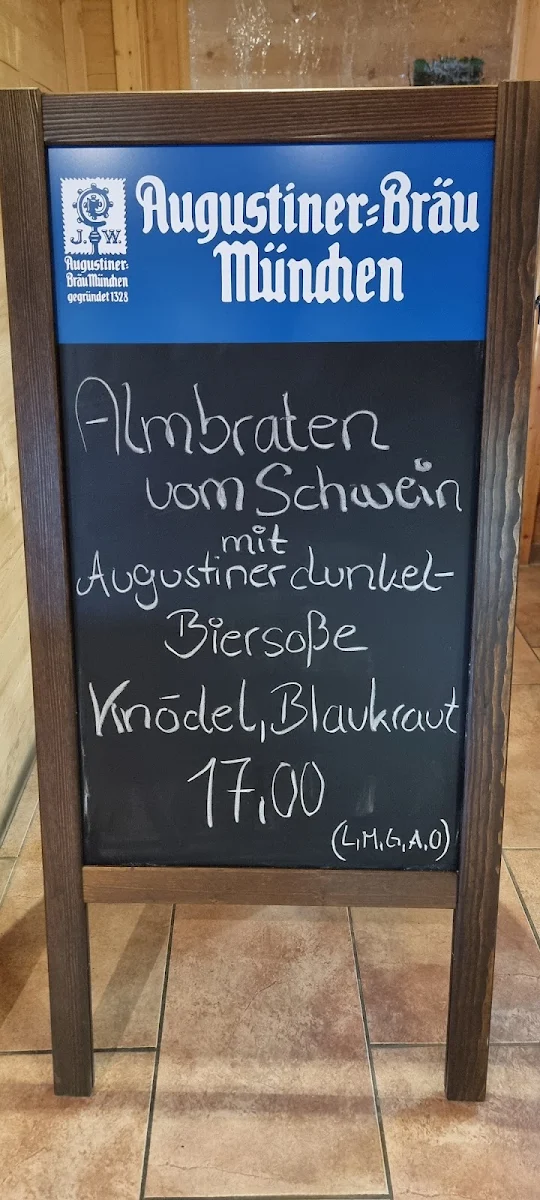 Augustiner-Bräu
München
J. W.
Augustiner-
Bräu München
gegründet 1328
Almbraten
vom Schwein
mit
Augustiner dunkel-
Biersoße
Knödel, Blaukraut
17,00
(L,M,G,A,O)